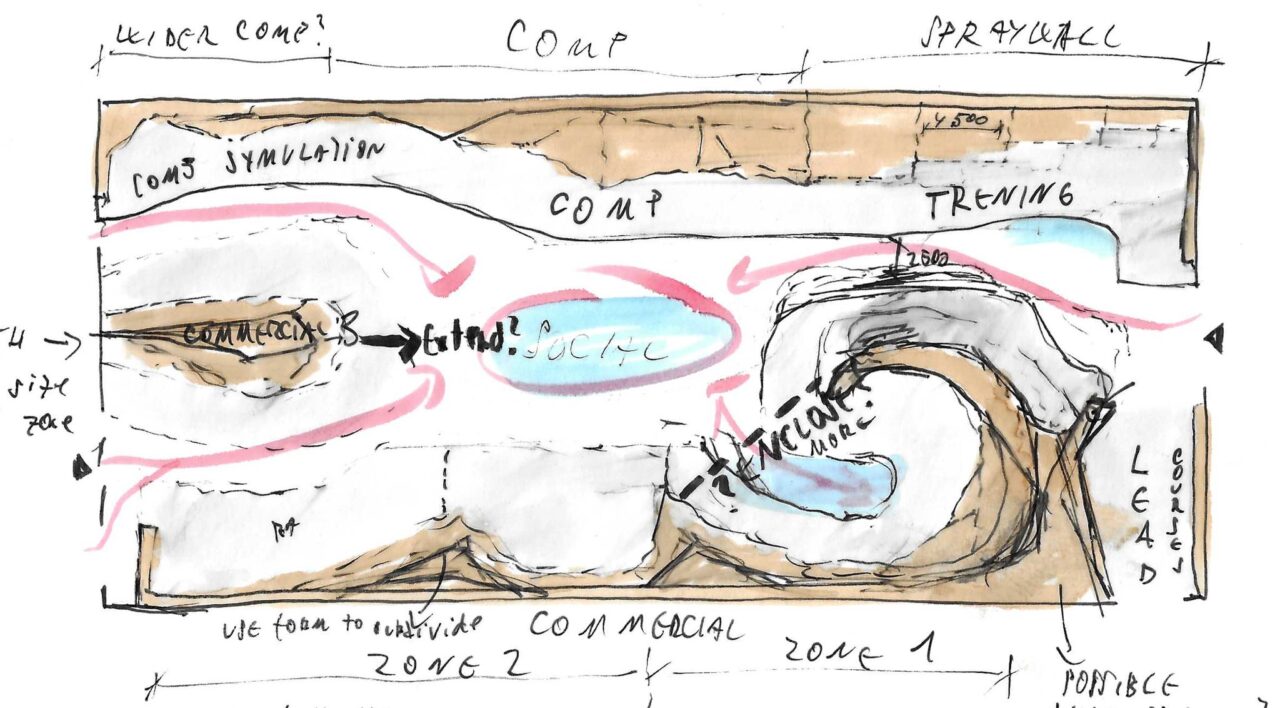 WIDER COMP?
COMP
SPRAYWALL
4500
COMP SYMULATION
COMP
TRENING
2500
COMMERCIAL B
Extend?
SOCIAL
site
zone
ENCLOSE?
MORE
LEAD
COURSES
USE form to subdivide
COMMERCIAL
ZONE 2
ZONE 1
POSSIBLE